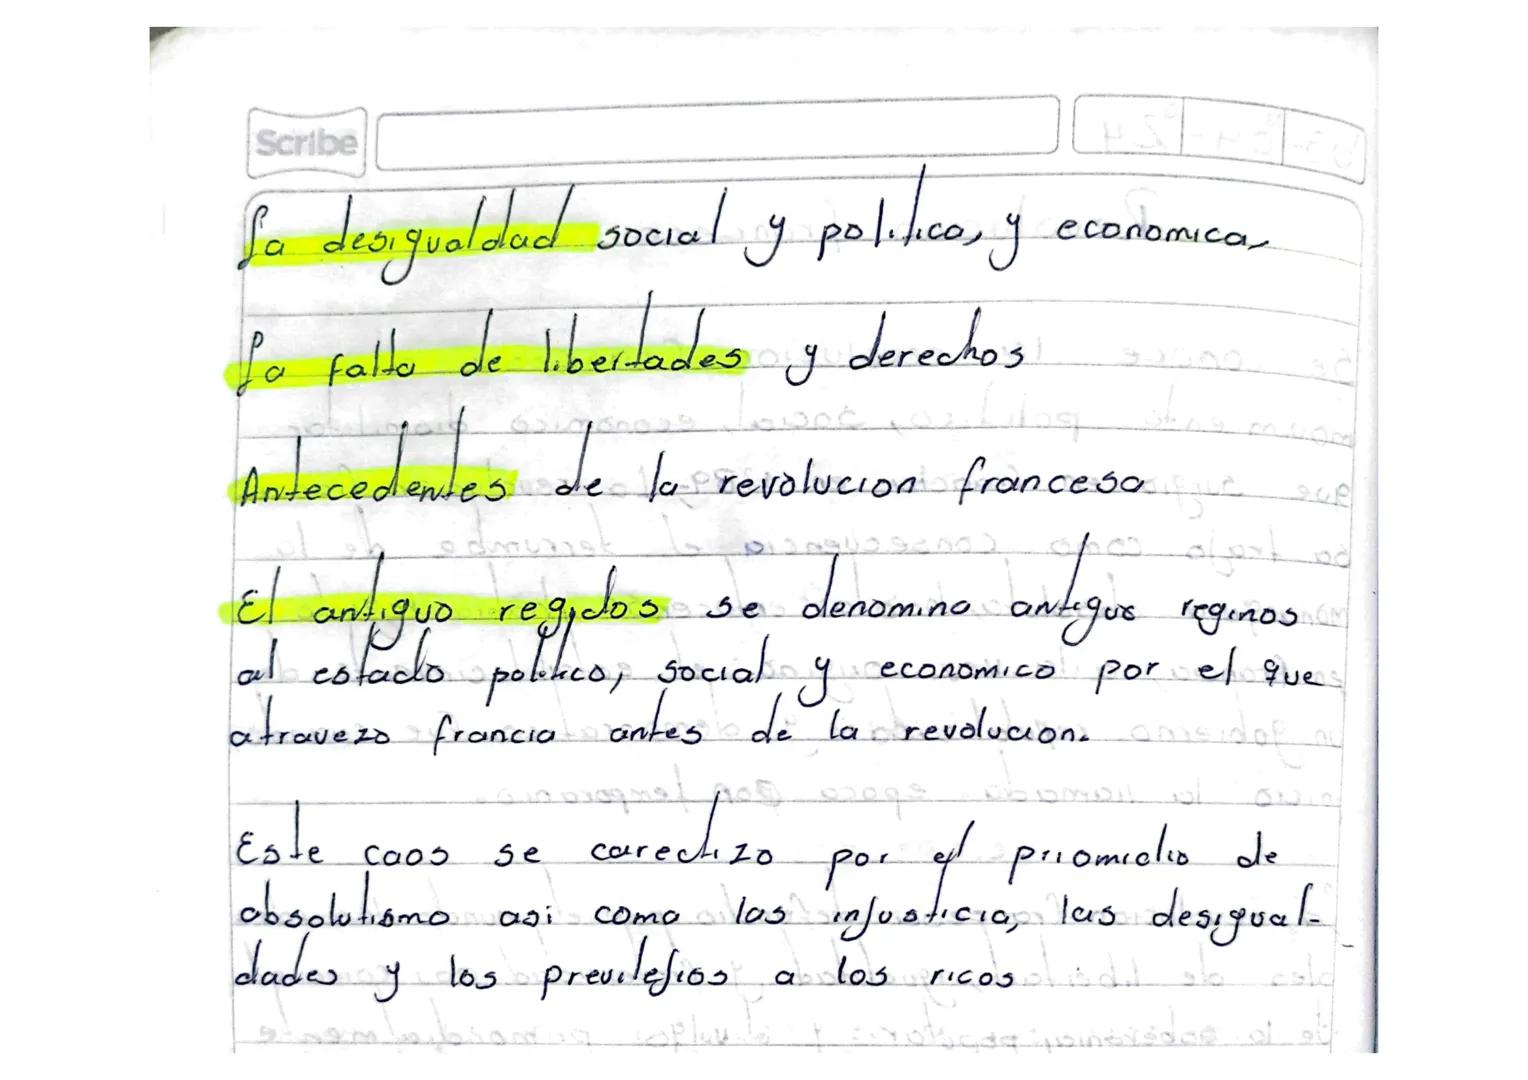 Scribe
La desigualdad social y politica, y economica,
La falta de libertades y derechos
Antecedentes de la revolucion francesa
El antiguo regidos se denomino antiguos reginos
al estado politico, social y economico por el que
atravezo francia antes de la revolucion.
Este caos se carectizo por el priomidio de
absolutismo asi como las injusticia, las desigual-
dades y los previlejios a los ricos